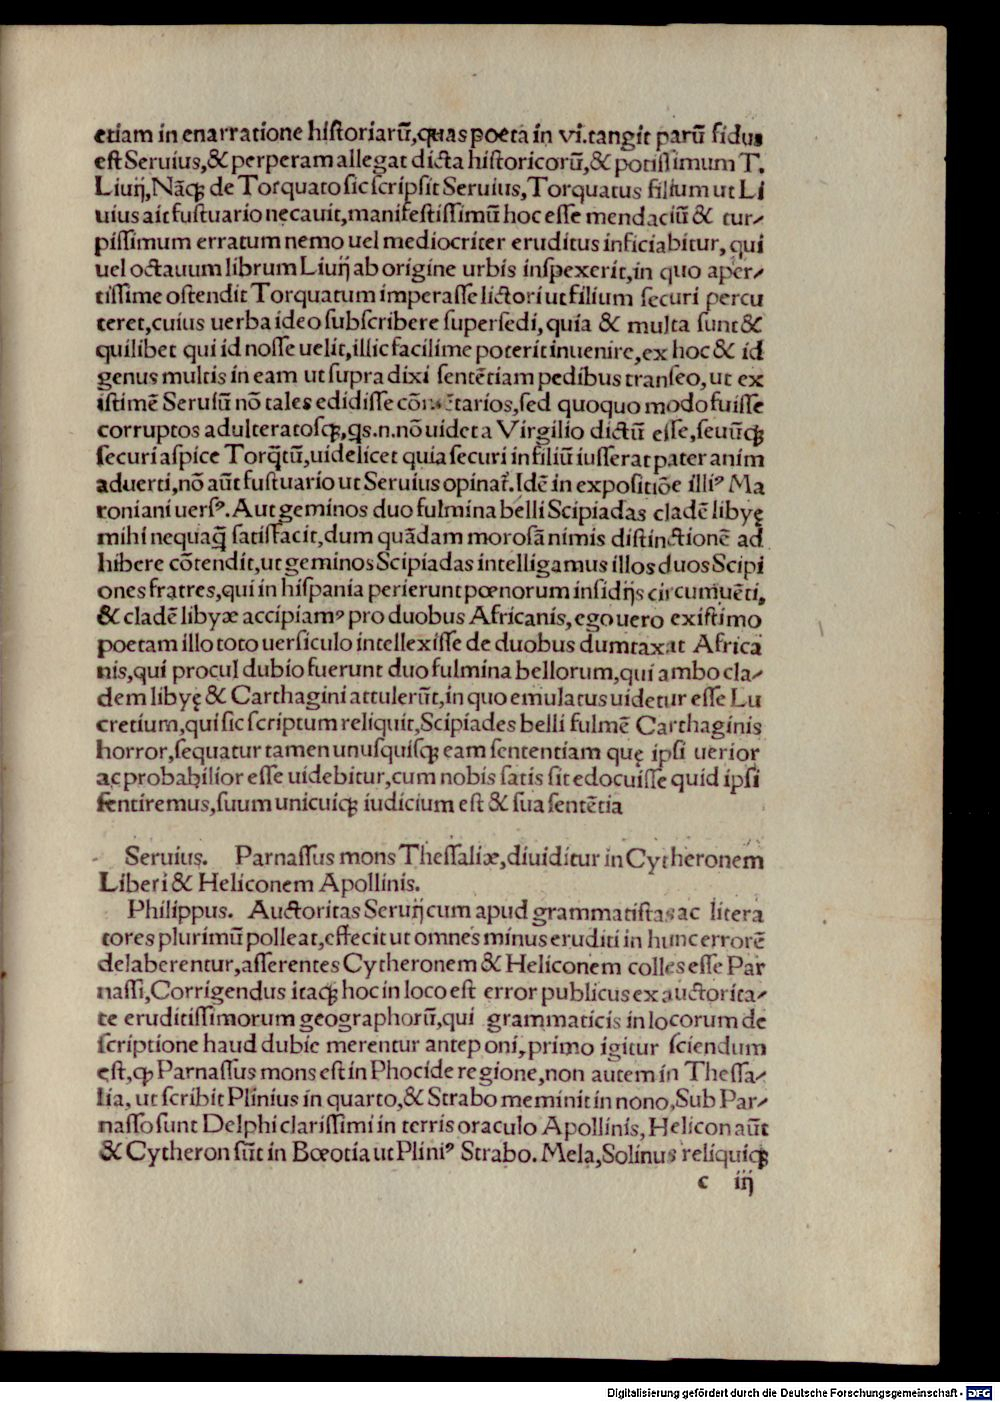 etiam in enarratione historiarū,quas poeta in vi.tangit parū fidus
est Seruius,& perperam allegat dicta historicorū,& potissimum T.
Liuij,Nāqꝫ de Torquato sic scripsit Seruius,Torquatus filium ut Li
uius ait fustuario necauit,manifestissimū hoc esse mendaciū & tur-
pissimum erratum nemo uel mediocriter eruditus inficiabitur, qui
uel octauum librum Liuij ab origine urbis inspexerit,in quo aper-
tissime ostendit Torquatum imperasse lictori ut filium securi percu
teret,cuius uerba ideo subscribere supersedi, quia & multa sunt &
quilibet qui id nosse uelit,illic facilime poterit inuenire,ex hoc & id
genus multis in eam ut supra dixi sentētiam pedibus transeo, ut ex
istimē Seruiū nō tales edidisse cōmētarios,sed quoquo modo fuisse
corruptos adulteratosqꝫ,qs.n.nō uidet a Virgilio dictū esse,seuūqꝫ
securi aspice Torq̄tū,uidelicet quia securi in filiū iusserat pater anim
aduerti,nō aūt fustuario ut Seruius opinat̄.Idē in expositiōe illiꝰ Ma
roniani uersꝰ.Aut geminos duo fulmina belli Scipiadas cladē libyę
mihi nequaq̄ satisfacit,dum quādam morosā nimis distinctionē ad
hibere cōtendit,ut geminos Scipiadas intelligamus illos duos Scipi
ones fratres,qui in hispania perierunt pœnorum insidijs circumuēti,
& cladē libyæ accipiamꝰ pro duobus Africanis, ego uero existimo
poetam illo toto uersiculo intellexisse de duobus dumtaxat Africa
nis,qui procul dubio fuerunt duo fulmina bellorum,qui ambo cla-
dem libyę & Carthagini attulerūt,in quo emulatus uidetur esse Lu
cretium,qui sic scriptum reliquit,Scipiades belli fulmē Carthaginis
horror,sequatur tamen unusquisqꝫ eam sententiam quę ipsi uerior
ac probabilior esse uidebitur,cum nobis satis sit edocuisse quid ipsi
sentiremus,suum unicuiqꝫ iudicium est & sua sentētia
Seruius. Parnassus mons Thessaliæ,diuiditur in Cytheronem
Liberi & Heliconem Apollinis.
Philippus. Auctoritas Seruij cum apud grammatistas ac litera
tores plurimū polleat,effecit ut omnes minus eruditi in hunc errorē
delaberentur,asserentes Cytheronem & Heliconem colles esse Par
nassi,Corrigendus itaqꝫ hoc in loco est error publicus ex auctorita-
te eruditissimorum geographorū,qui grammaticis in locorum de
scriptione haud dubie merentur anteponi,primo igitur sciendum
est,ꝙ Parnassus mons est in Phocide regione,non autem in Thessa-
lia, ut scribit Plinius in quarto,& Strabo meminit in nono,Sub Par-
nasso sunt Delphi clarissimi in terris oraculo Apollinis, Helicon aūt
& Cytheron sūt in Bœotia ut Pliniꝰ Strabo. Mela,Solinus reliquiqꝫ
c iij
Digitalisierung gefördert durch die Deutsche Forschungsgemeinschaft - DFG